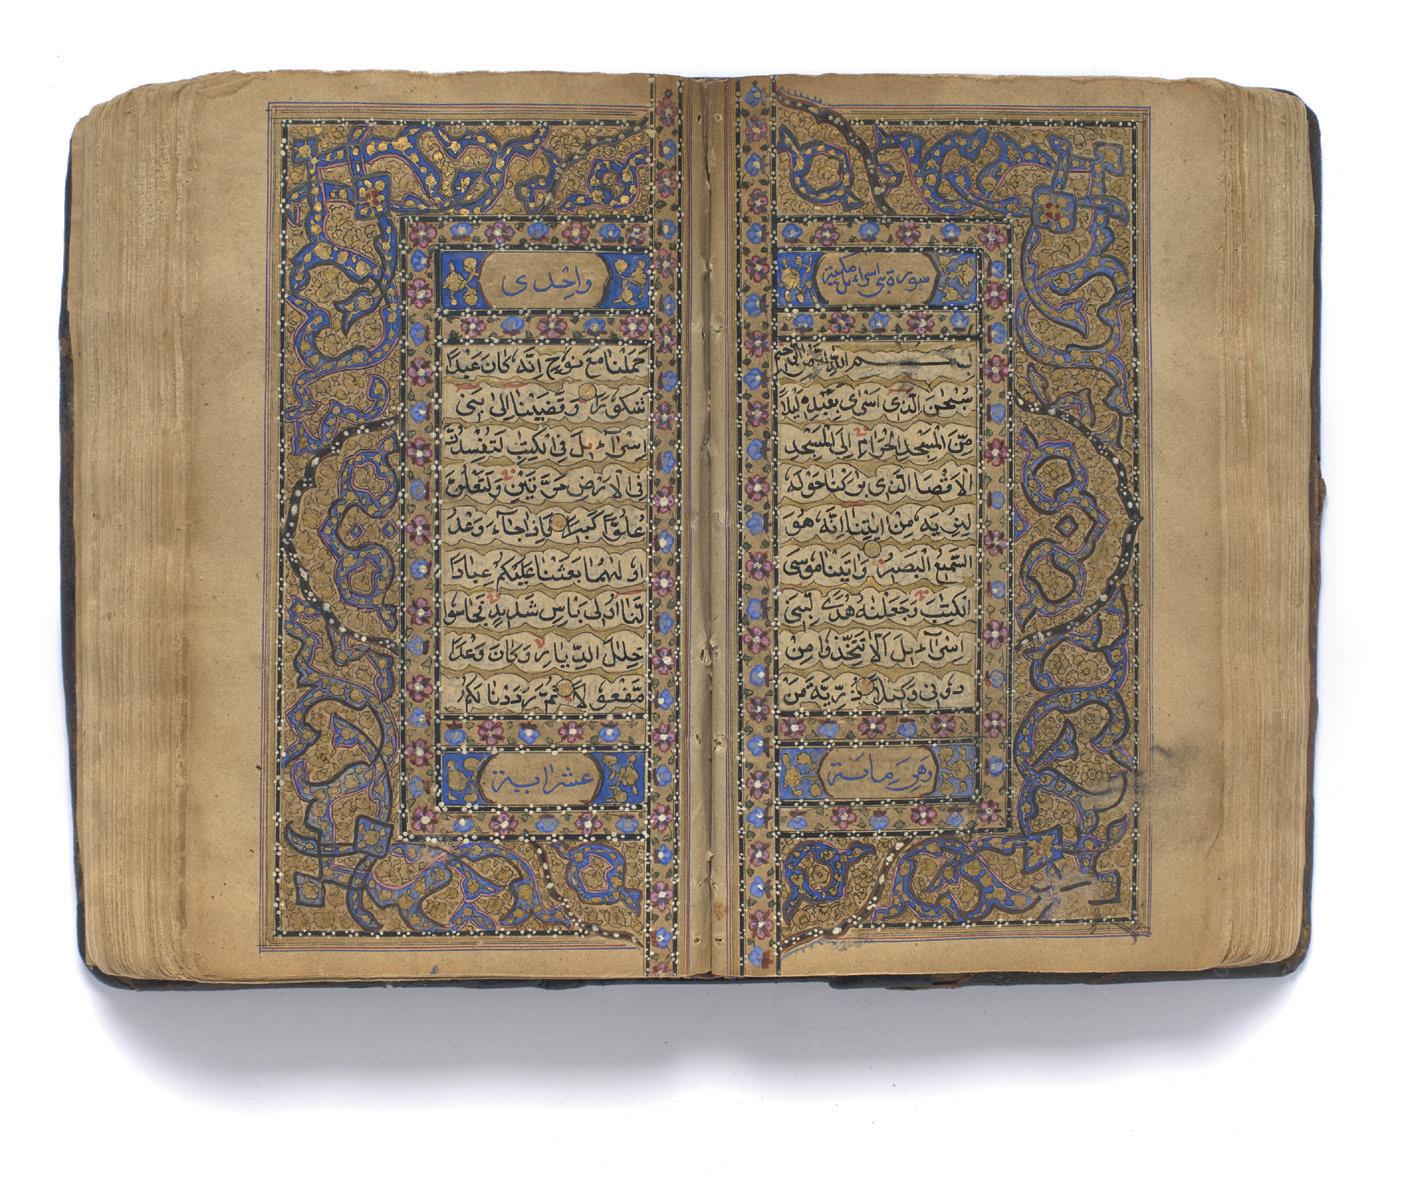 سورة بنی اسراءیل مكية
بسم الله الرحمن الرحيم
سُبْحٰنَ الَّذِی اَسْرٰی بِعَبْدِهٖ لَيْلًا
مِّنَ الْمَسْجِدِ الْحَرَامِ اِلَی الْمَسْجِدِ
الْاَقْصَا الَّذِی بٰرَكْنَا حَوْلَهٗ
لِنُرِيَهٗ مِنْ اٰيٰتِنَا اِنَّهٗ هُوَ
السَّمِيْعُ الْبَصِيْرُ وَاٰتَيْنَا مُوْسَی
الْكِتٰبَ وَجَعَلْنٰهُ هُدًی لِّبَنِیْ
اِسْرَآءِيْلَ اَلَّا تَتَّخِذُوْا مِنْ
دُوْنِیْ وَكِيْلًا ذُرِّيَّةَ مَنْ
وهی مائة
واحدی
حَمَلْنَا مَعَ نُوْحٍ اِنَّهٗ كَانَ عَبْدًا
شَكُوْرًا وَقَضَيْنَا اِلٰی بَنِیْ
اِسْرَآءِيْلَ فِی الْكِتٰبِ لَتُفْسِدُنَّ
فِی الْاَرْضِ مَرَّتَيْنِ وَلَتَعْلُنَّ
عُلُوًّا كَبِيْرًا فَاِذَا جَآءَ وَعْدُ
اُوْلٰىهُمَا بَعَثْنَا عَلَيْكُمْ عِبَادًا
لَّنَا اُولِیْ بَاْسٍ شَدِيْدٍ فَجَاسُوْا
خِلٰلَ الدِّيَارِ وَكَانَ وَعْدًا
مَّفْعُوْلًا ثُمَّ رَدَدْنَا لَكُمُ
عشر اية